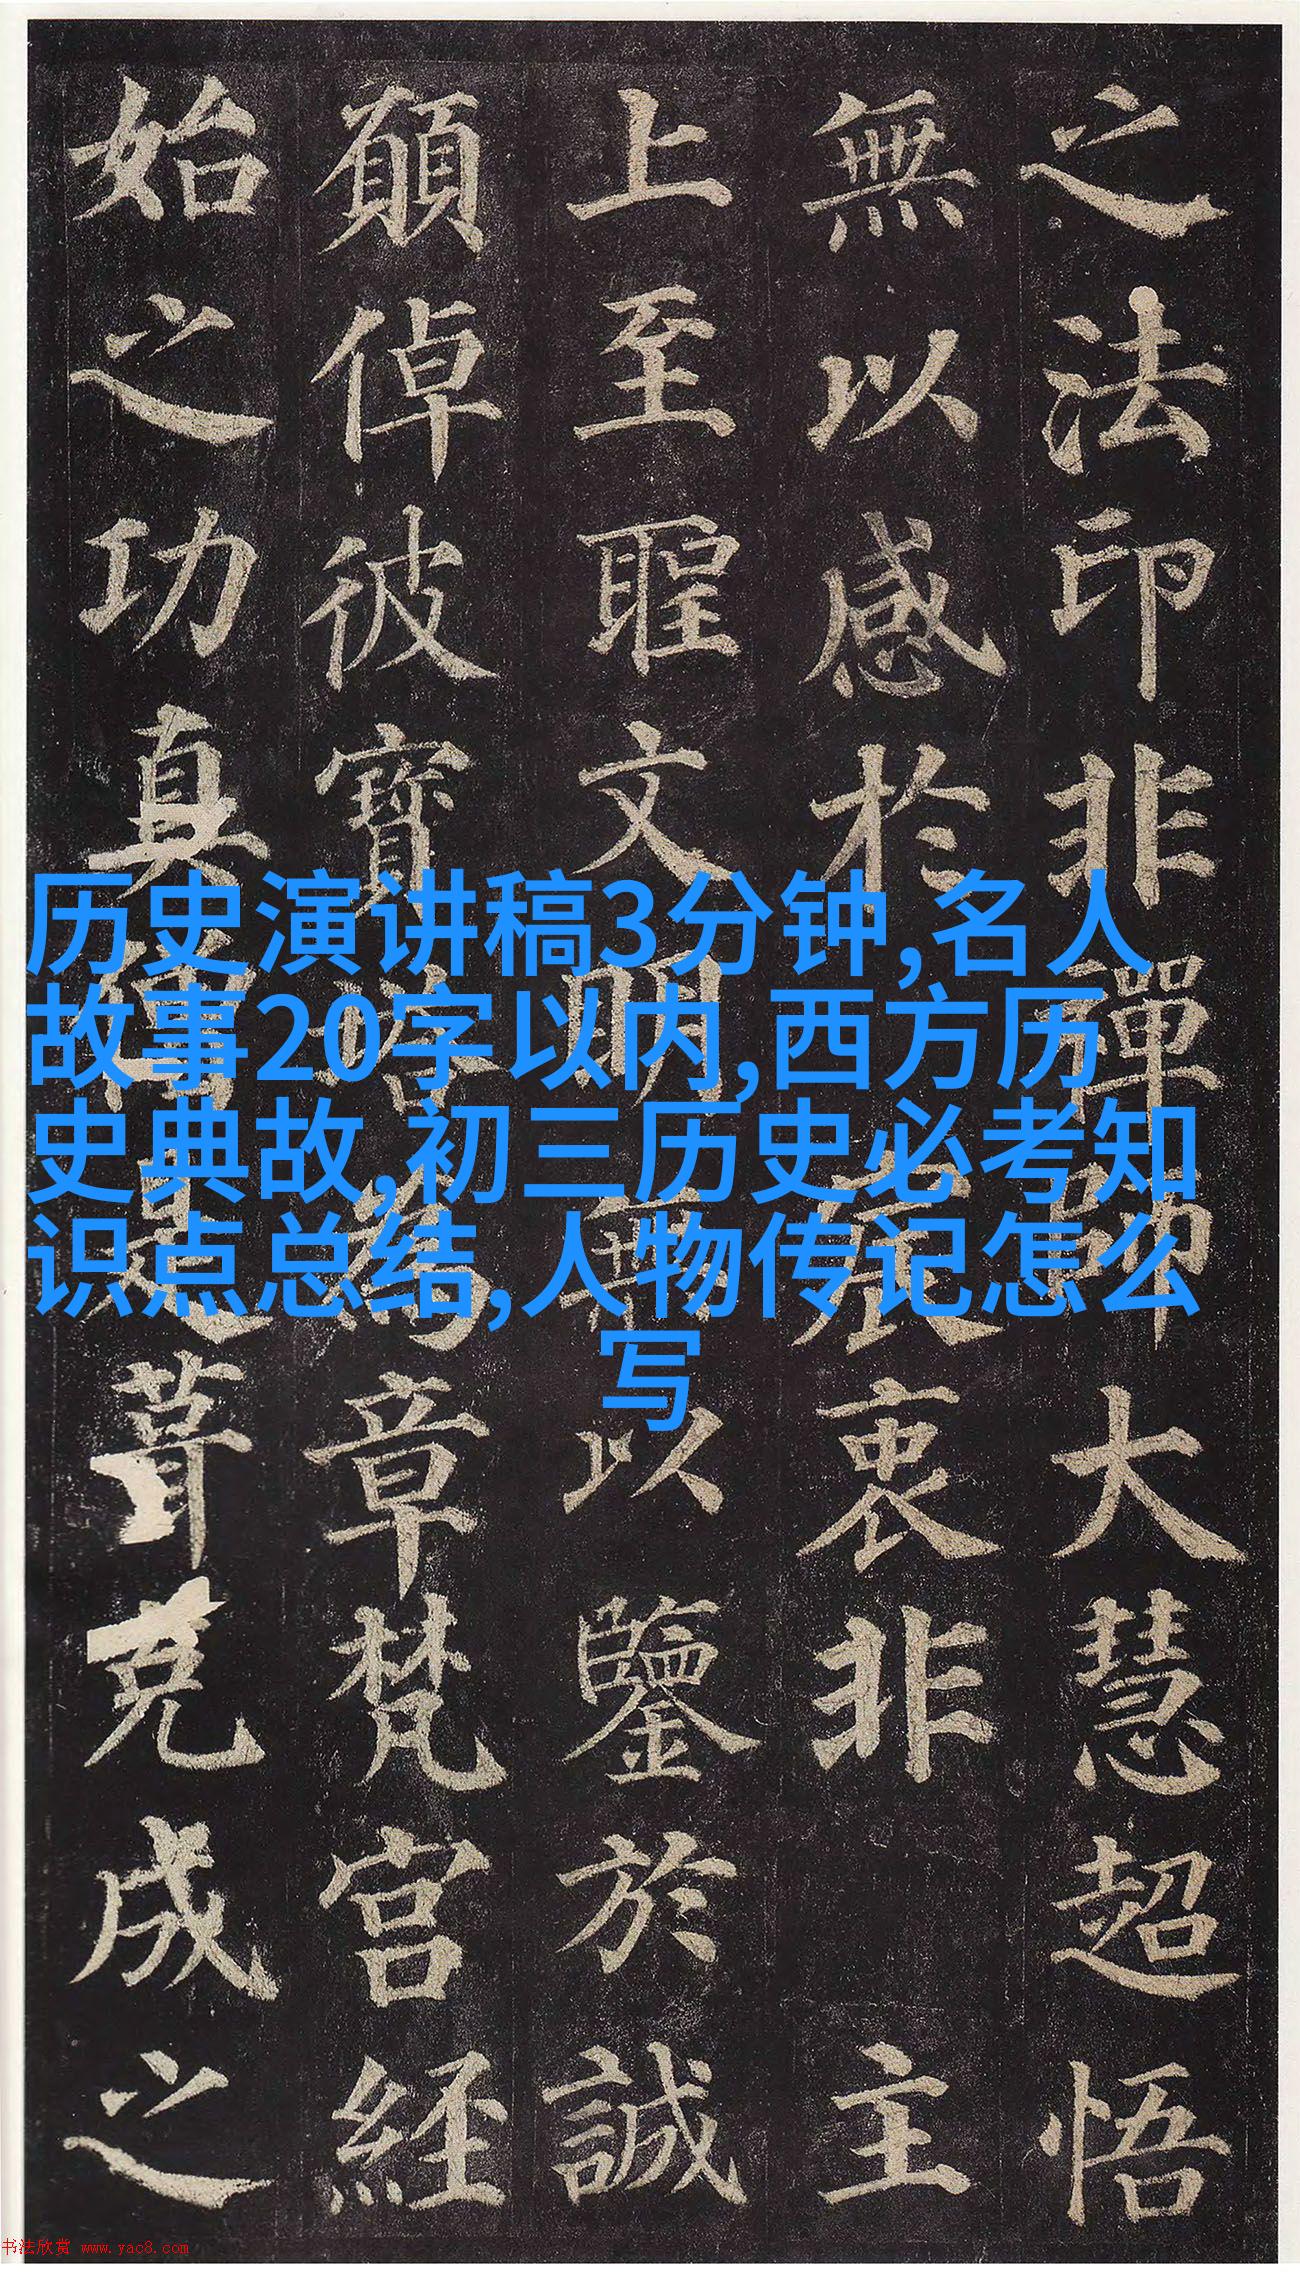 之法印非禪師大慧超悟
無以感於宸衷非主
上至聖文明無以鑒於誠
願倬彼寶塔為章梵宮經
始之功真僧是葺克成之
历史演讲稿3分钟,名人
故事20字以内,西方历
史典故,初三历史必考知
识点总结,人物传记怎么
写
书法欣赏 www.yac8.com